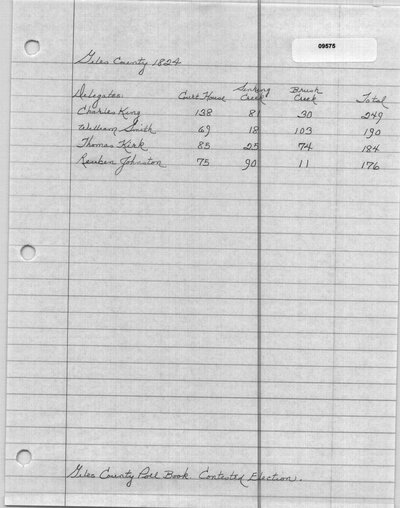 09575
Giles County 1824
Delegates Court House Sinking Creek Brush Creek Total
Charles King 138 81 30 249
William Smith 69 18 103 190
Thomas Kirk 85 25 74 184
Reuben Johnston 75 90 11 176
Giles County Poll Book. Contested Election.